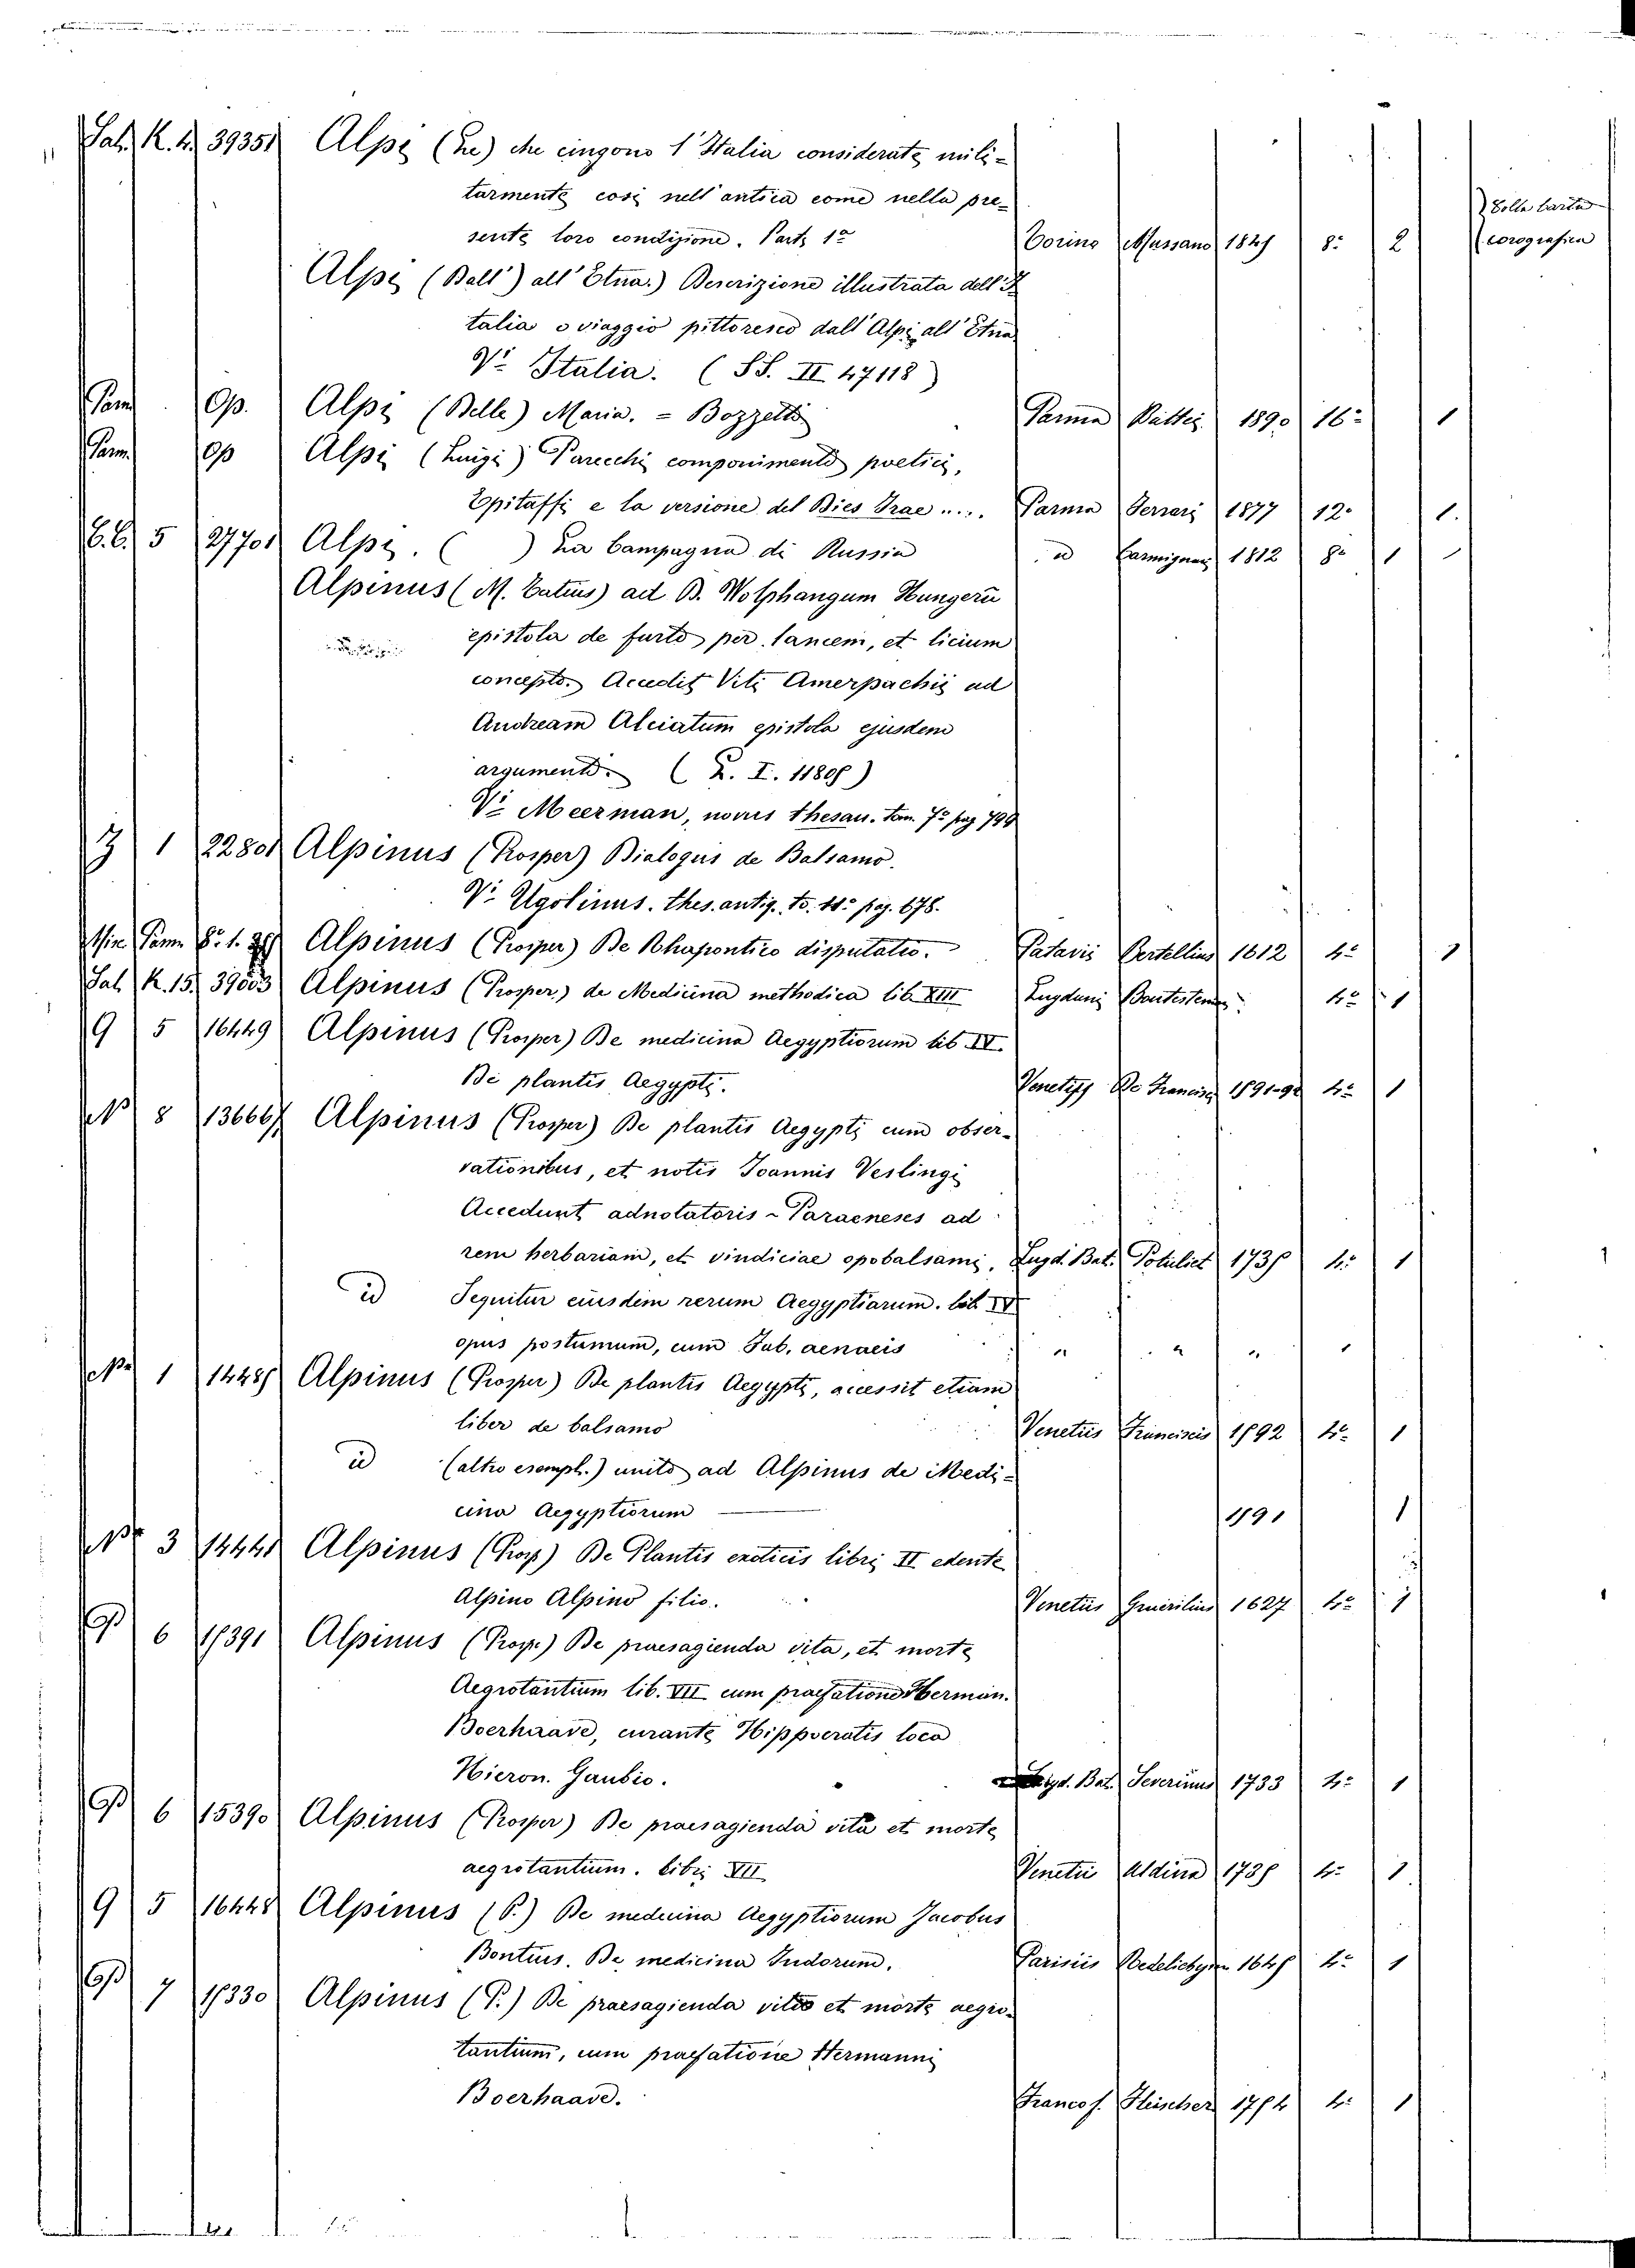 Sal. K. 4. 39351 Alpi (Le) che cingono l'Italia considerate mili-
tarmente così nell'antica come nella pre-
sente loro condizione. Parte 1ª Torino Massano 1845 8º 2 Colla carta
corografica
Alpi (Dall') all'Etna.) Descrizione illustrata dell'I
talia o viaggio pittoresco dall'Alpi all'Etna
Vi Italia. (SS. II 47118)
Parm Op. Alpi (Delle) Maria. = Bozzetto Parma Battei 1890 16º 1
Parm. Op Alpi (Luigi) Parecchi componimenti poetici,
Epitaffi e la versione del Dies Irae .... Parma Ferrari 1877 12º 1.
C.C. 5 27701 Alpi. ( ) La Campagna di Russia id Carmignani 1812 8º 1
Alpinus (M. Catius) ad D. Wolphangum Hungeru
epistola de furto per lancem, et licium
concepto. Accedit Viti Amerpachii ad
Andream Alciatum epistola ejusdem
argumenti. (Z. I. 11805)
Vi Meerman, novus thesau. tom. 7º pag 799
Z 1 22801 Alpinus (Prosper) Dialogus de Balsamo.
Vi Ugolinus. thes. antiq. to. 11º pag. 678.
Alpinus (Prosper) De Rhapontico disputatio. Patavii Bertellius 1612 4º 1
Sal. K. 15. 39003 Alpinus (Prosper.) de Medicina methodica lib. XIII Lugduni 4º 1
9 5 16449 Alpinus (Prosper) De medicina Aegyptiorum lib IV.
De plantis Aegypti. Venetiis De Francisci 1591-92 4º 1
N 8 13666/ Alpinus (Prosper) De plantis Aegypti cum obser-
vationibus, et notis Joannis Veslingi
Accedunt adnotatoris - Paraeneses ad
rem herbariam, et vindiciae opobalsami, Lugd. Bat. Potuliet 1735 4º 1
id Sequitur eiusdem rerum Aegyptiarum. lib. IV
opus postumum, cum Tab. aenaeis " " " 1
1 14485 Alpinus (Prosper) De plantis Aegypti, accessit etiam
liber de balsamo Venetiis Franciscis 1592 4º 1
id (altro esempl.) unito ad Alpinus de Medi-
cina Aegyptiorum 1591 1
3 14441 Alpinus (Prosp) De Plantis exoticis libri II edente
Alpino Alpino filio. Venetiis Guerilius 1627 4º 1
6 15391 Alpinus (Prosp.) De praesagienda vita, et morte
Aegrotantium lib. VII cum praefatione Herman.
Boerhaave, curante Hippocratis loca
Hieron. Gaubio. Lugd. Bat. Severinus 1733 4º 1
6 15390 Alpinus (Prosper) De praesagienda vita et morte
aegrotantium. libri VII Venetii Aldina 1735 4º 1
9 5 16448 Alpinus (P.) De medicina Aegyptiorum Jacobus
Bontius. De medicina Indorum. Parisiis 1645 4º 1
7 15330 Alpinus (P.) De praesagienda vita et morte aegro-
tantium, cum praefatione Hermanni
Boerhaave. Francof. Fleischer 1754 4º 1